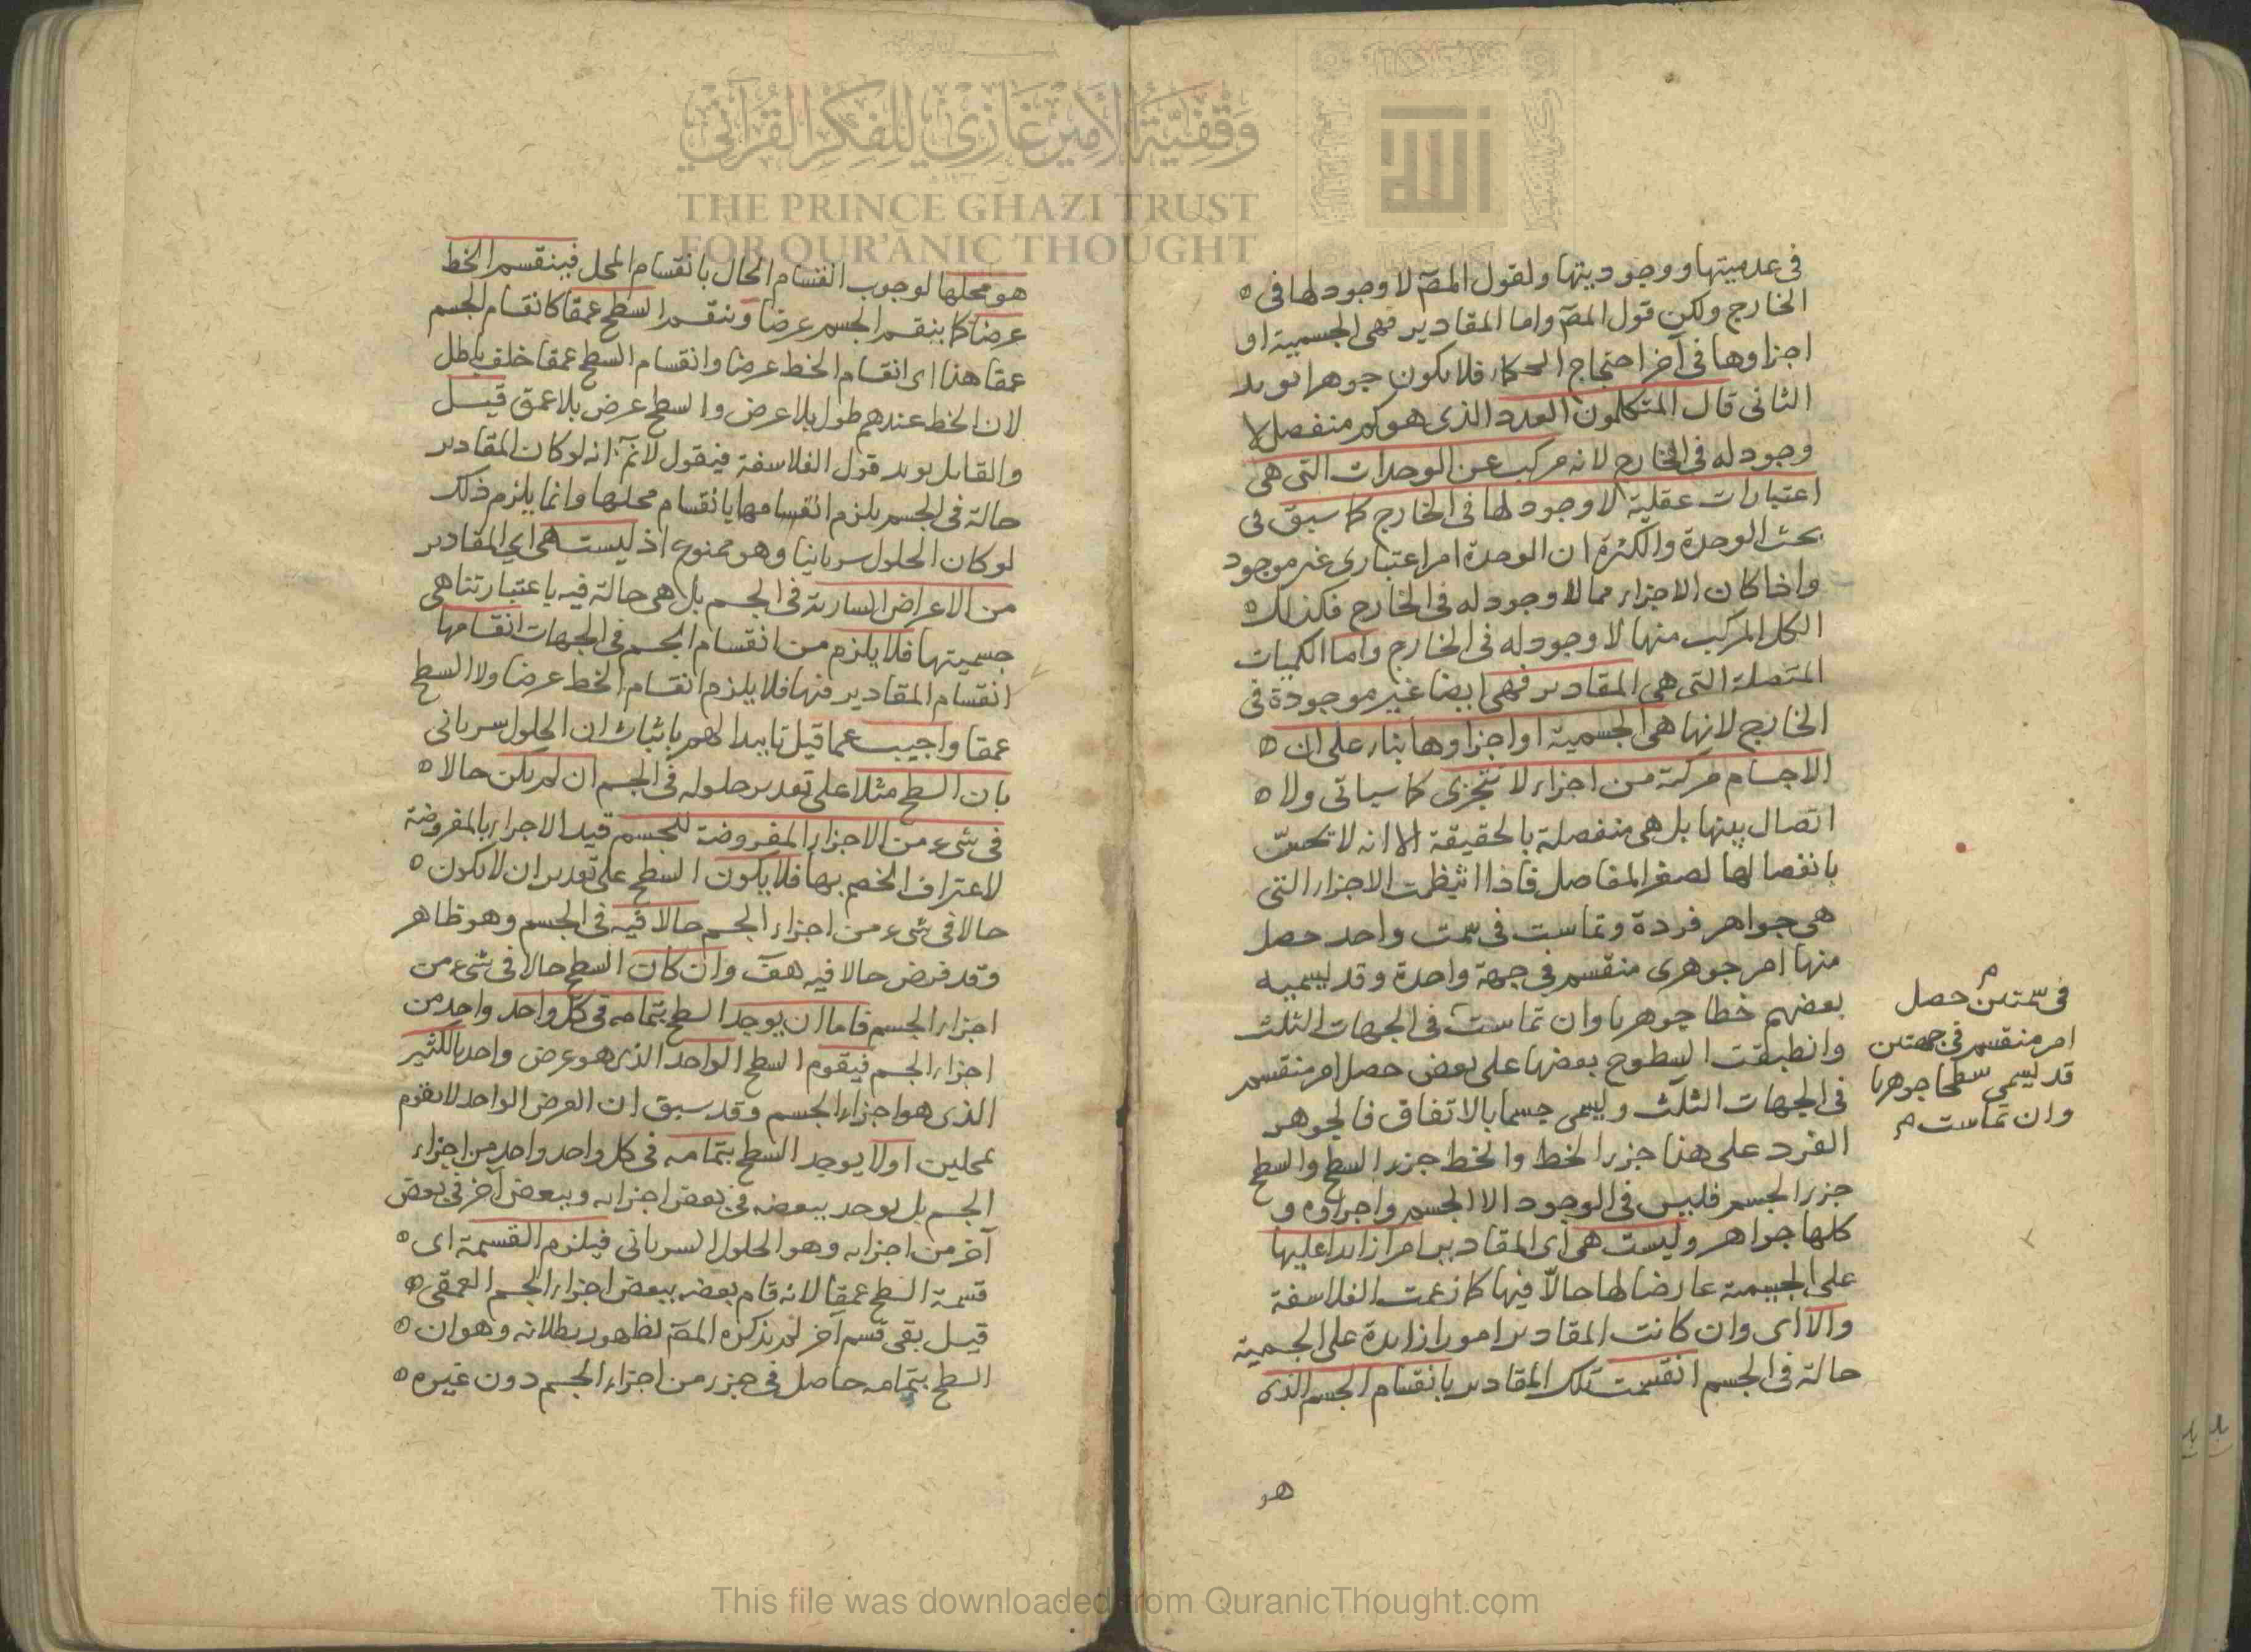 وقفية الأمير غازي للفكر القرآني
THE PRINCE GHAZI TRUST
FOR QUR'ANIC THOUGHT
في عدميتها ووجوديتها ولقول المصـ لا وجود لها في
الخارج ولكن قول المصـ واما المقادير فهي الجسمية او
اجزاوها في آخر احتجاج الحكماء فلا يكون جوهرا يويد
الثاني قال المتكلمون العدد الذي هو كم منفصل لا
وجود له في الخارج لانه مركب عن الوحدات التي هي
اعتبارات عقلية لا وجود لها في الخارج كما سبق في
بحث الوحدة والكثرة ان الوحدة امر اعتباري غير موجود
واذا كان الاجزاء مما لا وجود له في الخارج فكذلك
الكل المركب منها لا وجود له في الخارج واما الكميات
المتصلة التي هي المقادير فهي ايضا غير موجودة في
الخارج لانها هي الجسمية او اجزاوها بناء على ان
الاجسام مركبة من اجزاء لا تتجزى كما سياتي ولا
اتصال بينها بل هي منفصلة بالحقيقة الا انه لا تحس
بانفصالها لصغر المفاصل فاذا انتظمت الاجزاء التي
هي جواهر فردة وتماست في سمت واحد حصل
منها امر جوهري منقسم في جهة واحدة وقد يسميه
بعضهم خطا جوهريا وان تماست في الجهات الثلث
وانطبقت السطوح بعضها على بعض حصل امر منقسم
في الجهات الثلث ويسمى جسما بالاتفاق فالجوهر
الفرد على هذا جزء الخط والخط جزء السطح والسطح
جزء الجسم فليس في الوجود الا الجسم واجزاوه و
كلها جواهر وليست هي اي المقادير امرا زايدا عليها
على الجسمية عارضا لها حالا فيها كما زعمت الفلاسفة
والا اي وان كانت المقادير امورا زايدة على الجسمية
حالة في الجسم انقسمت تلك المقادير بانقسام الجسم الذي
هو
في سمتين حصل
امر منقسم في جهتين
قد يسمى سطحا جوهريا
وان تماست
هو محلها لوجوب انقسام الحال بانقسام المحل فينقسم الخط
عرضا كما ينقسم الجسم عرضا وينقسم السطح عمقا كانقسام الجسم
عمقا هذا اي انقسام الخط عرضا وانقسام السطح عمقا خلف باطل
لان الخط عندهم طول بلا عرض والسطح عرض بلا عمق قيل
والقايل يويد قول الفلاسفة فيقول لانم انه لو كان المقادير
حالة في الجسم يلزم انقسامها بانقسام محلها وانما يلزم ذلك
لو كان الحلول سريانيا وهو ممنوع اذ ليست هي اي المقادير
من الاعراض السارية في الجسم بل هي حالة فيه باعتبار تناهي
جسميتها فلا يلزم من انقسام الجسم في الجهات انقسامها
انقسام المقادير منها فلا يلزم انقسام الخط عرضا ولا السطح
عمقا واجيب عما قيل تاييدا لهم باثبات ان الحلول سرياني
بان السطح مثلا على تقدير حلوله في الجسم ان لم يكن حالا
في شيء من الاجزاء المفروضة للجسم قيد الاجزاء بالمفروضة
لاعتراف الخصم بها فلا يكون السطح على تقدير ان لا يكون
حالا في شيء من اجزاء الجسم حالا فيه في الجسم وهو ظاهر
وقد فرض حالا فيه هف وان كان السطح حالا في شيء من
اجزاء الجسم فاما ان يوجد السطح بتمامه في كل واحد واحد من
اجزاء الجسم فيقوم السطح الواحد الذي هو عرض واحد بالكثير
الذي هو اجزاء الجسم وقد سبق ان العرض الواحد لا يقوم
بمحلين اولا يوجد السطح بتمامه في كل واحد واحد من اجزاء
الجسم بل يوجد ببعضه في بعض اجزايه وببعض آخر في بعض
آخر من اجزايه وهو الحلول السرياني فيلزم القسمة اي
قسمة السطح عمقا لانه قام بعضه ببعض اجزاء الجسم العمقي
قيل بقي قسم آخر لم يذكره المصـ لظهور بطلانه وهو ان
السطح بتمامه حاصل في جزء من اجزاء الجسم دون غيره
This file was downloaded from QuranicThought.com